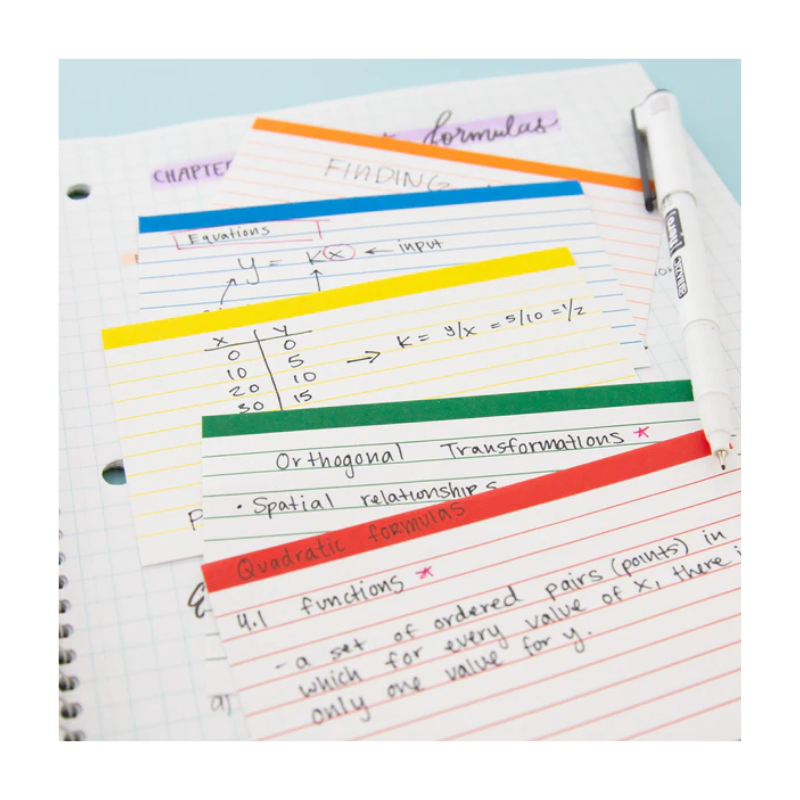 CHAPTE formulas
FINDING
Equations
y = Kx ← input
x y
0 0
10 5
20 10
30 15
→ K = y/x = 5/10 = 1/2
Orthogonal Transformations *
• Spatial relationships
Quadratic formulas
4.1 functions *
- a set of ordered pairs (points) in
which for every value of x, there i
only one value for y.
a)